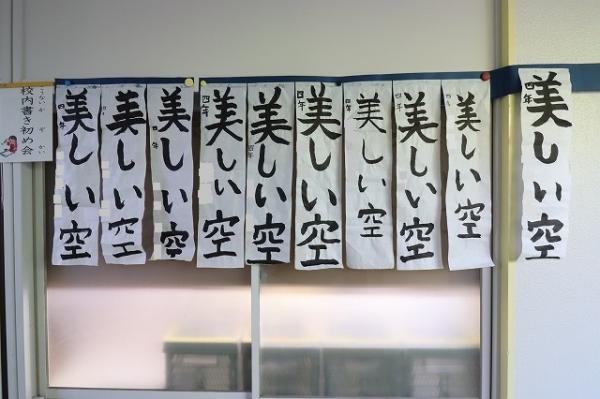 こうないかきぞめかい
校内書き初め会
四年
美しい空
四年
美しい空
四年
美しい空
四年
美しい空
四年
美しい空
四年
美しい空
四年
美しい空
四年
美しい空
四年
美しい空
四年
美しい空